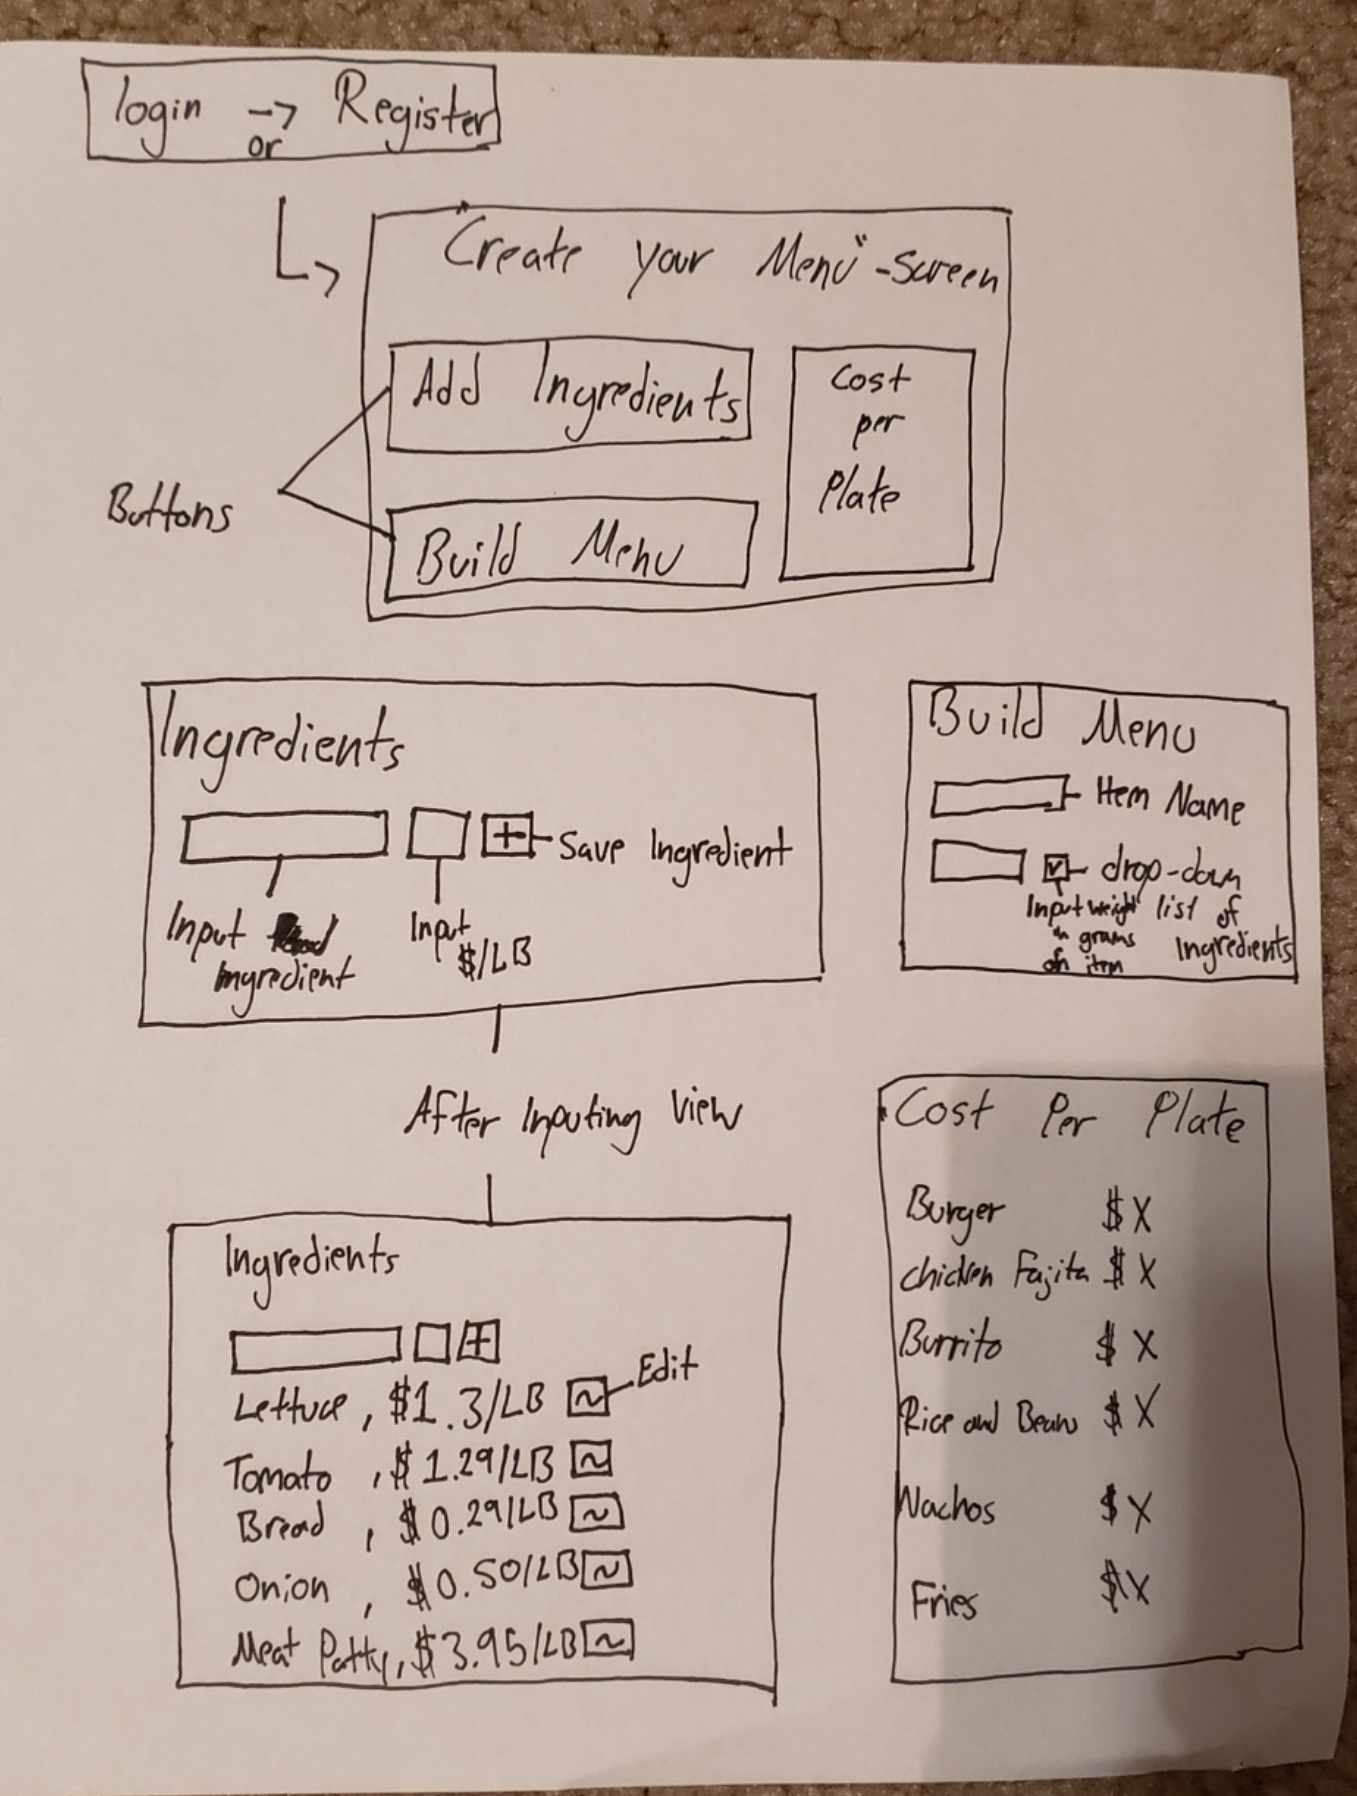 login -> Register
or
"Create your Menu" -screen
Add Ingredients
Cost
per
Plate
Buttons
Build Menu
Ingredients
+ Save Ingredient
Input
ingredient
Input
$/LB
Build Menu
Item Name
drop-down
list of
Ingredients
Input weight
in grams
of item
After Inputing View
Ingredients
+
Edit
Lettuce, $1.3/LB ~
Tomato, $1.29/LB ~
Bread, $0.29/LB ~
Onion, $0.50/LB ~
Meat Patty, $3.95/LB ~
Cost Per Plate
Burger $X
Chicken Fajita $X
Burrito $X
Rice and Beans $X
Nachos $X
Fries $X